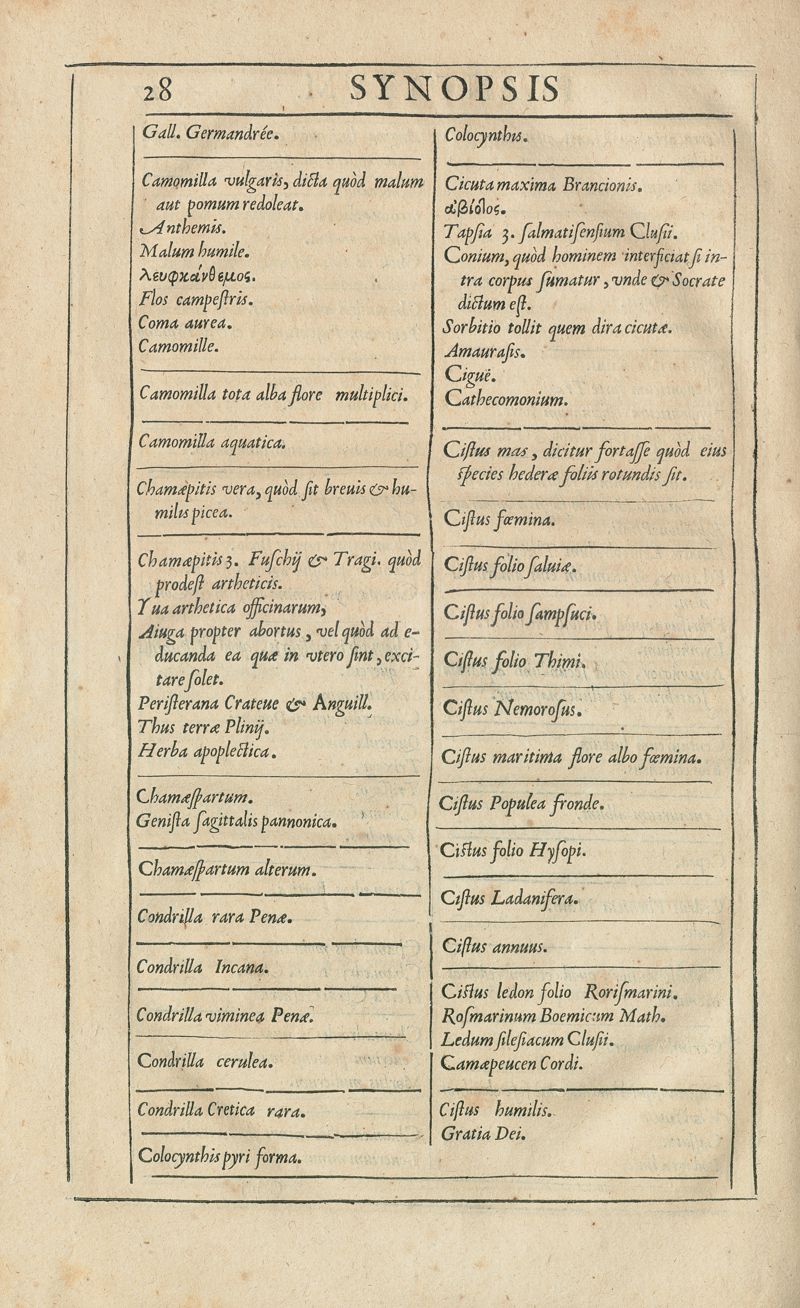 28 SYNOPSIS
Gall. Germandrée.
Camomilla vulgaris, dicta quòd malum
aut pomum redoleat.
Anthemis.
Malum humile.
λευφκάνθεμος.
Flos campeſtris.
Coma aurea.
Camomille.
Camomilla tota alba flore multiplici.
Camomilla aquatica.
Chamæpitis vera, quòd ſit breuis & hu-
milis picea.
Chamæpitis 3. Fuſchij & Tragi. quòd
prodeſt artheticis.
Yua arthetica officinarum,
Aiuga propter abortus, vel quòd ad e-
ducanda ea quæ in vtero ſint, exci-
tare ſolet.
Periſterana Crateue & Anguill.
Thus terræ Plinij.
Herba apoplectica.
Chamæſpartum.
Geniſta ſagittalis pannonica.
Chamæſpartum alterum.
Condrilla rara Penæ.
Condrilla Incana.
Condrilla viminea Penæ.
Condrilla cerulea.
Condrilla Cretica rara.
Colocynthis pyri forma.
Colocynthis.
Cicuta maxima Brancionis.
Tapſia 3. ſalmatiſenſium Cluſii.
Conium, quòd hominem interficiat ſi in-
tra corpus ſumatur, vnde & Socrate
dictum eſt.
Sorbitio tollit quem dira cicutæ.
Amauraſis.
Ciguë.
Cathecomonium.
Ciſtus mas, dicitur fortaſſe quòd eius
ſpecies hederæ foliis rotundis ſit.
Ciſtus fœmina.
Ciſtus folio ſaluiæ.
Ciſtus folio ſampſuci.
Ciſtus folio Thimi.
Ciſtus Nemoroſus.
Ciſtus maritima flore albo fœmina.
Ciſtus Populea fronde.
Ciſtus folio Hyſopi.
Ciſtus Ladanifera.
Ciſtus annuus.
Ciſtus ledon folio Roriſmarini.
Roſmarinum Boemicum Math.
Ledum ſileſiacum Cluſii.
Camæpeucen Cordi.
Ciſtus humilis.
Gratia Dei.